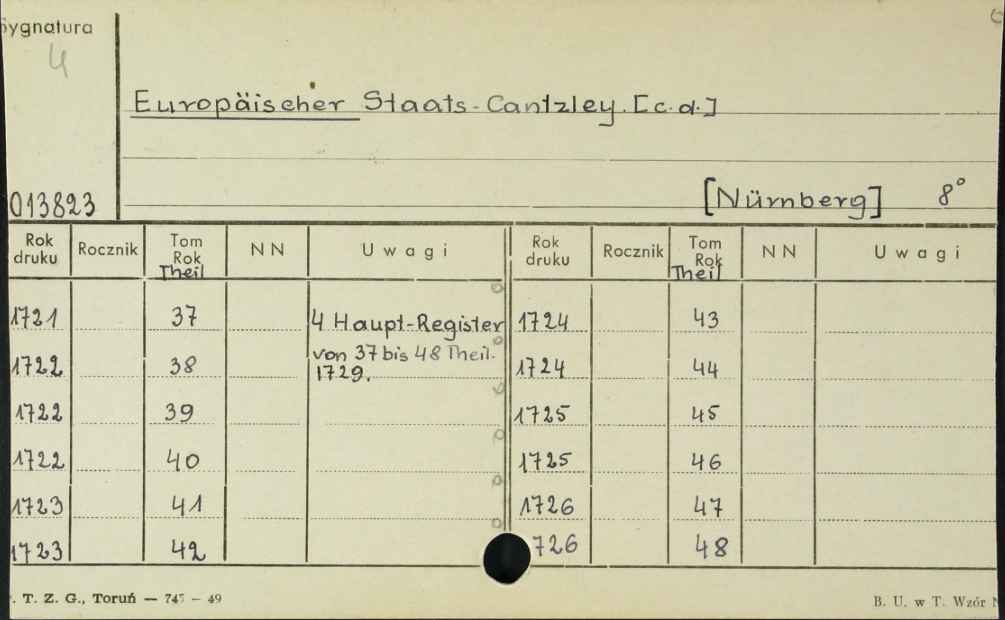 Sygnatura
4
Europäischer Staats-Cantzley. [c.d.]
013823
[Nürnberg] 8°
Rok druku Rocznik Tom Rok Theil NN Uwagi Rok druku Rocznik Tom Rok Theil NN Uwagi
1721 37 4 Haupt-Register 1724 43
von 37 bis 48 Theil.
1722 38 1729. 1724 44
1722 39 1725 45
1722 40 1725 46
1723 41 1726 47
1723 42 726 48
. T. Z. G., Toruń — 745 — 49
B. U. w T. Wzór